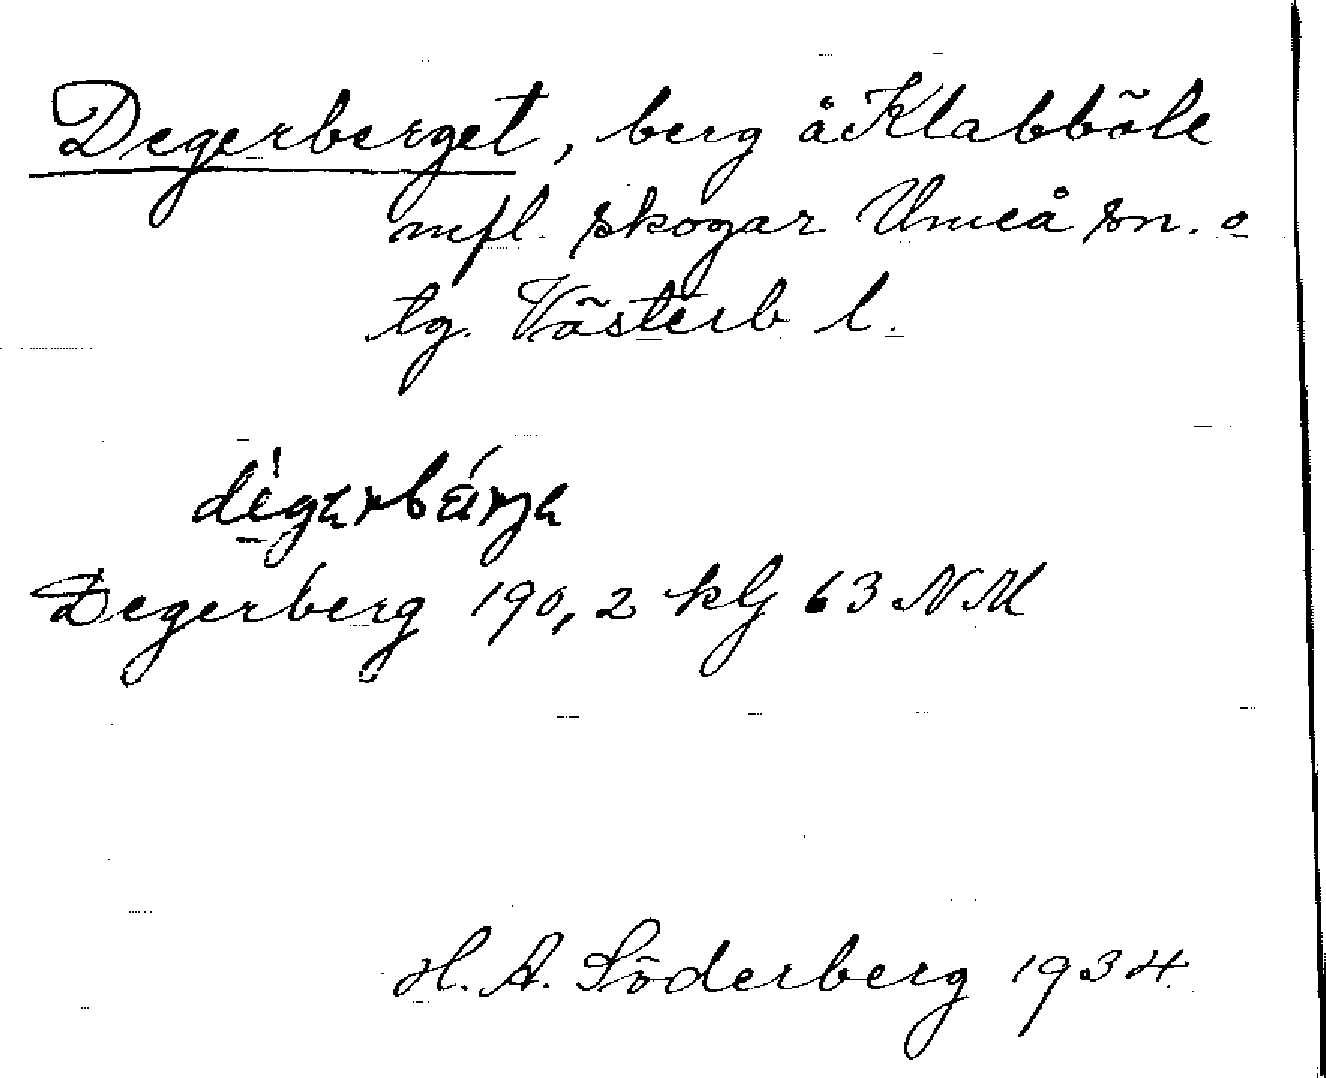 Degerberget, berg å Klabböle
mfl. skogar Umeå sn. o
tg. Västerb l.
dégərbárjə
Degerberg 190,2 kbl 63 NM
H. A. Söderberg 1934